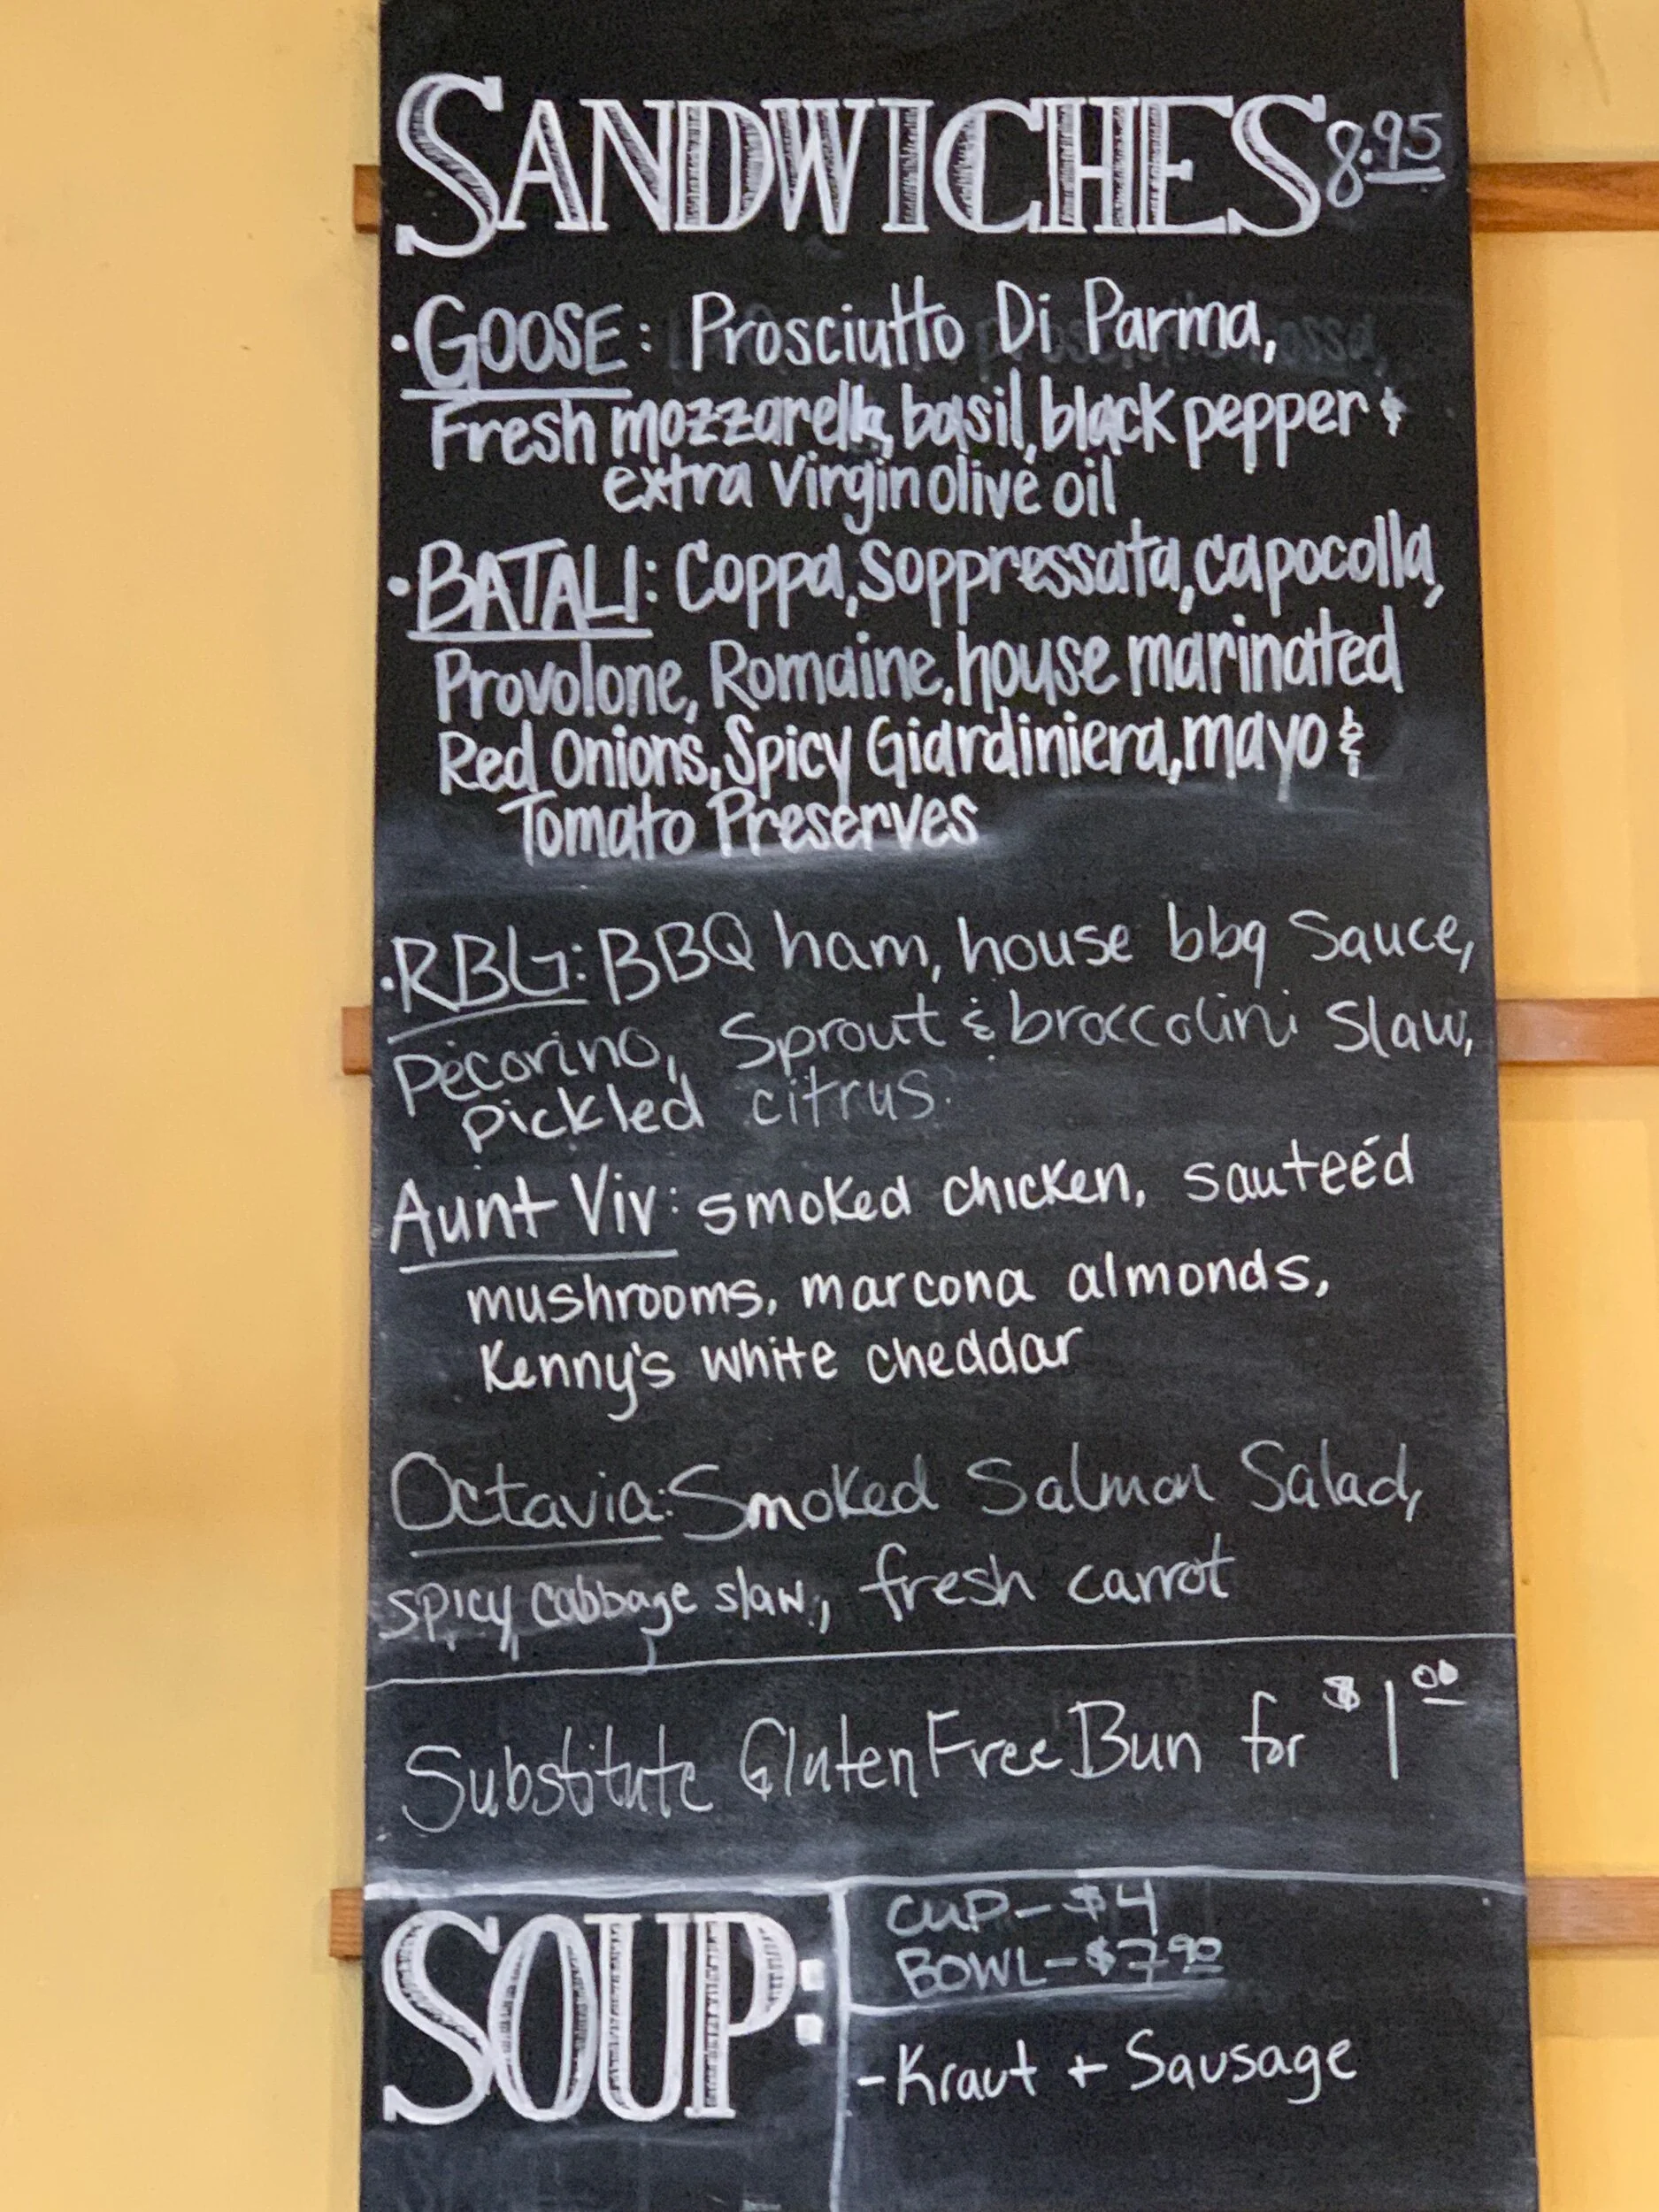 SANDWICHES 8.95
• GOOSE: Prosciutto Di Parma,
Fresh mozzarella, basil, black pepper &
extra virgin olive oil
• BATALI: Coppa, Soppressata, capocolla,
Provolone, Romaine, house marinated
Red Onions, Spicy Giardiniera, mayo &
Tomato Preserves
• RBG: BBQ ham, house bbq Sauce,
Pecorino, Sprout & broccolini Slaw,
pickled citrus.
Aunt Viv: smoked chicken, sauteéd
mushrooms, marcona almonds,
Kenny's white cheddar
Octavia: Smoked Salmon Salad,
spicy cabbage slaw, fresh carrot
Substitute Gluten Free Bun for $1.00
SOUP:
CUP - $4
BOWL - $7.90
- Kraut + Sausage